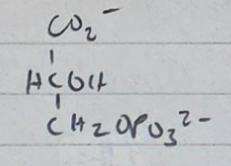 CO₂⁻
HCOH
CH₂OPO₃²⁻